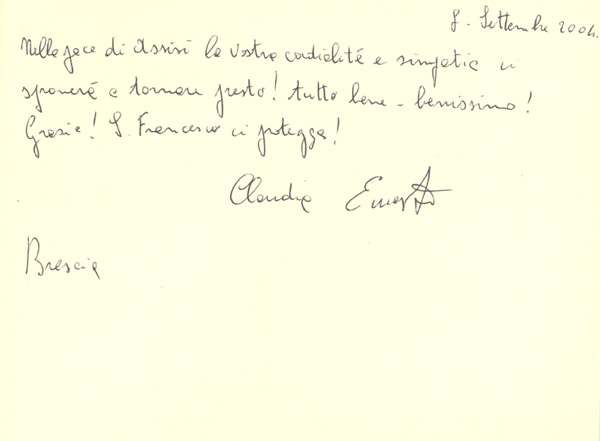 8. Settembre 2004.
Nella pace di Assisi la vostra cordialità e simpatia ci
spronerà a tornare presto! tutto bene - benissimo!
Grazie! S. Francesco ci protegga!
Claudia Ernesto
Brescia